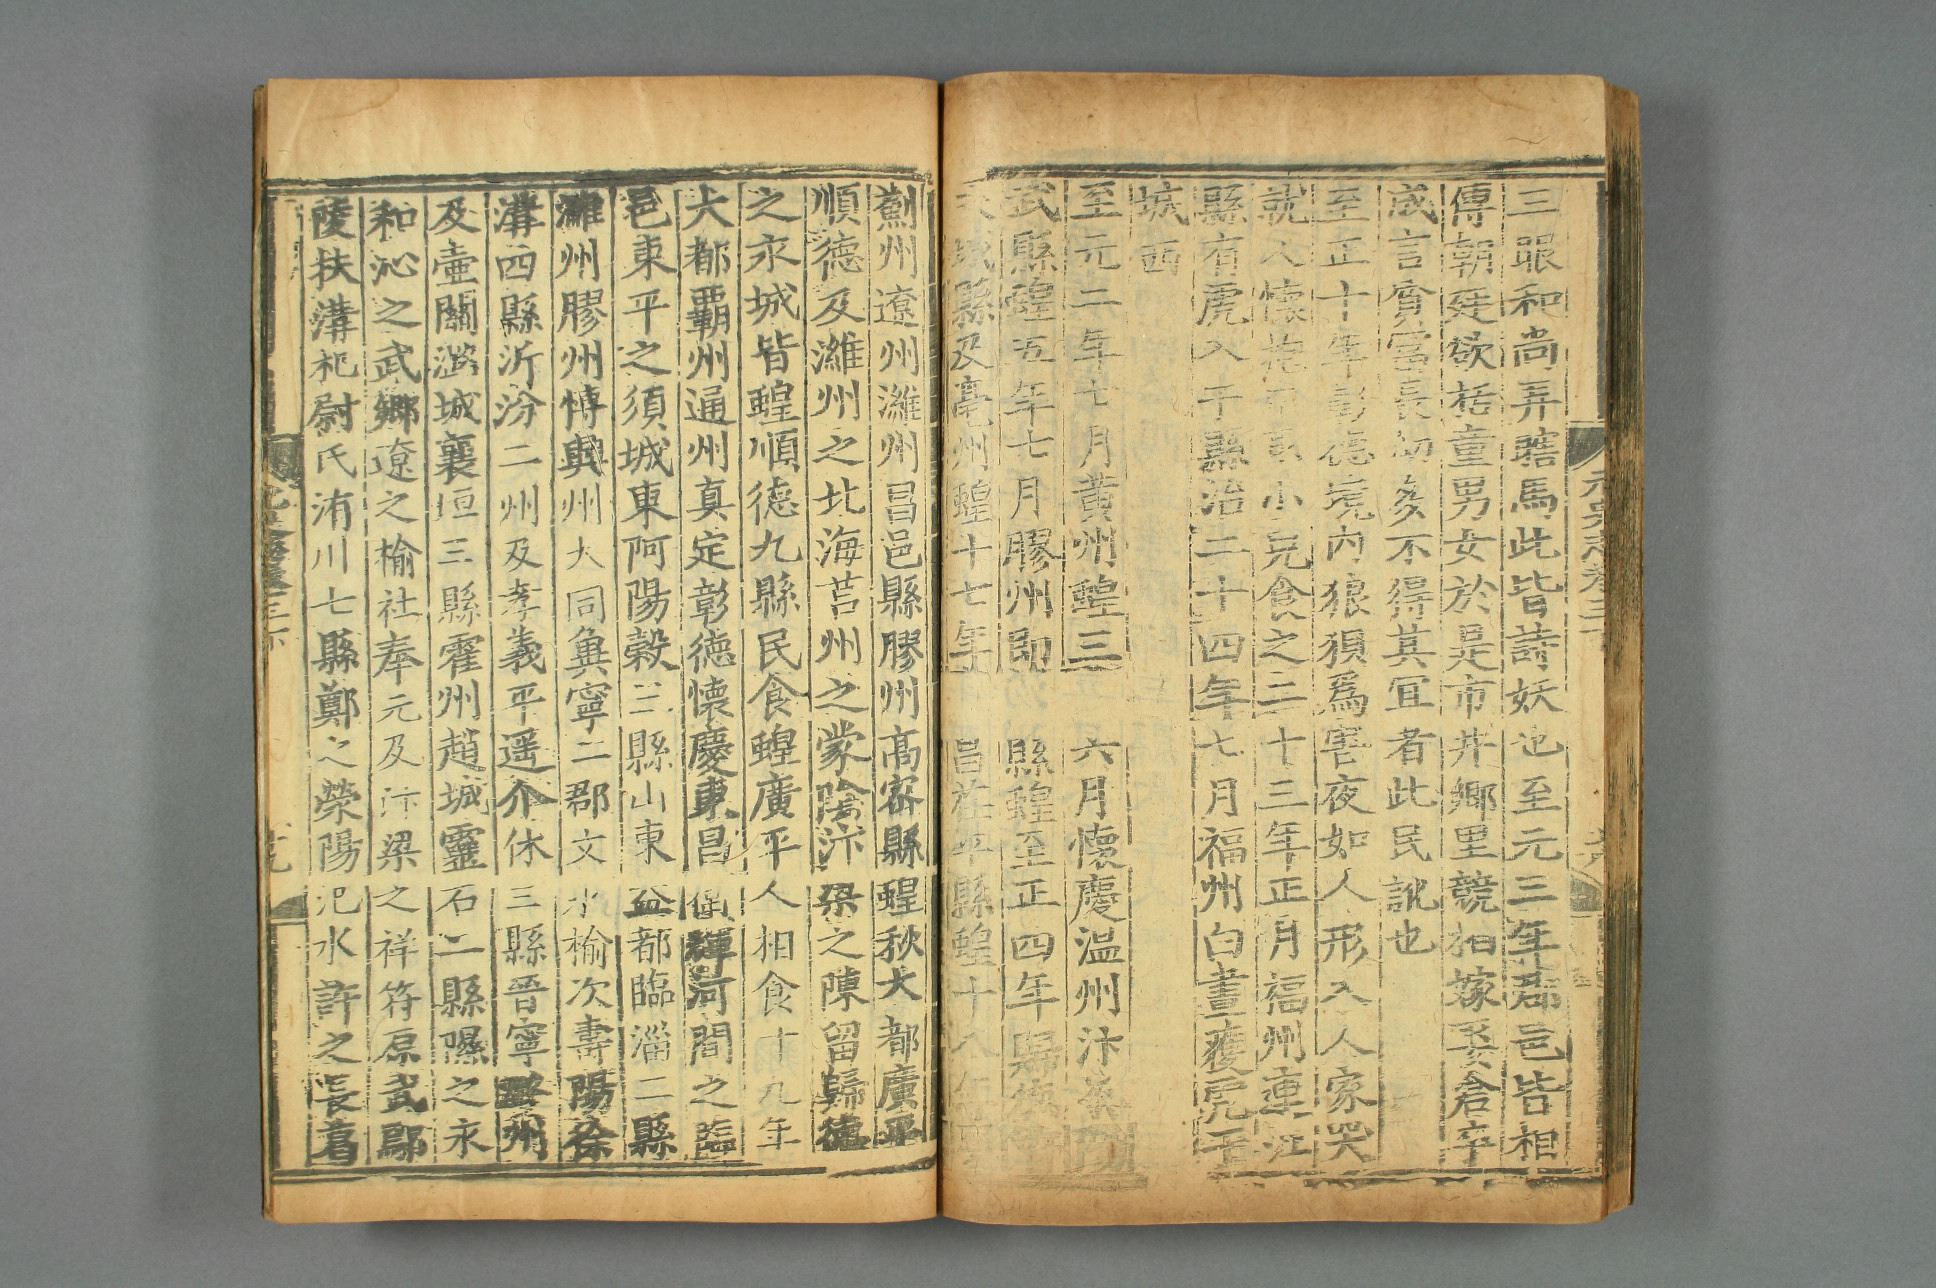 三眼和尚弄瞎馬此皆詩妖也至元三年郡邑皆相
傳朝廷欲括童男女於是市井鄉里競相嫁娶倉卒
成言貧富長幼多不得其宜者此民訛也
至正十年彰德境內狼狽爲害夜如人形入人家哭
就人懷抱中取小兒食之二十三年正月福州連江
縣有虎入于縣治二十四年七月福州白晝獲虎于
城西
至元二年七月黃州蝗三 六月懷慶溫州汴梁陽
武縣蝗五年七月膠州即 縣蝗至正四年歸德
城縣及亳州蝗十七年 昌茌平縣蝗十八年
薊州遼州濰州昌邑縣膠州高密縣蝗秋大都廣平
順德及濰州之北海莒州之蒙陰汴梁之陳留歸德
之永城皆蝗順德九縣民食蝗廣平人相食十九年
大都霸州通州真定彰德懷慶東昌衛輝河間之臨
邑東平之須城東阿陽穀三縣山東益都臨淄二縣
濰州膠州博興州大同冀寧二郡文水榆次壽陽徐
溝四縣沂汾二州及孝義平遥介休三縣晉寧潞州
及壺關潞城襄垣三縣霍州趙城靈石二縣隰之永
和沁之武鄉遼之榆社奉元及汴梁之祥符原武鄢
陵扶溝杞尉氏洧川七縣鄭之滎陽汜水許之長葛